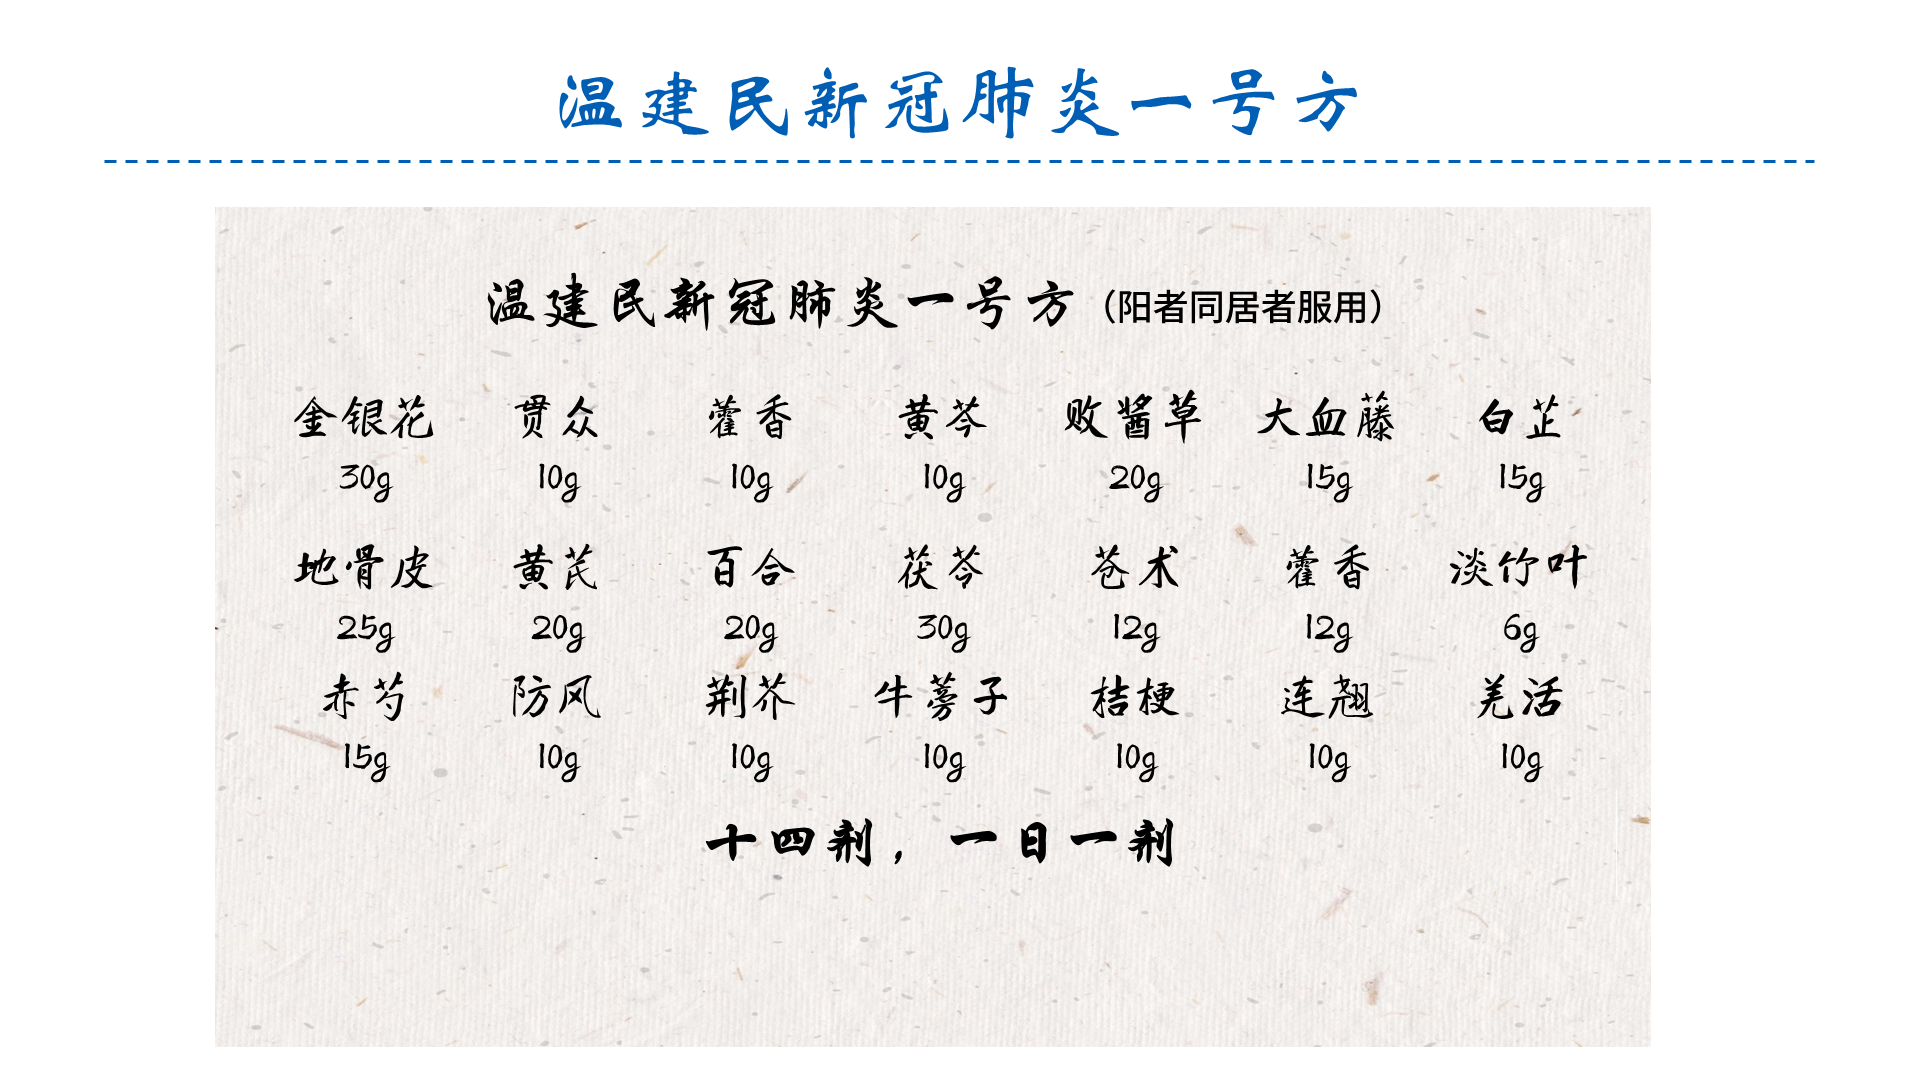 温建民新冠肺炎一号方
温建民新冠肺炎一号方（阳者同居者服用）
金银花 贯众 藿香 黄芩 败酱草 大血藤 白芷
30g 10g 10g 10g 20g 15g 15g
地骨皮 黄芪 百合 茯苓 苍术 藿香 淡竹叶
25g 20g 20g 30g 12g 12g 6g
赤芍 防风 荆芥 牛蒡子 桔梗 连翘 羌活
15g 10g 10g 10g 10g 10g 10g
十四剂，一日一剂